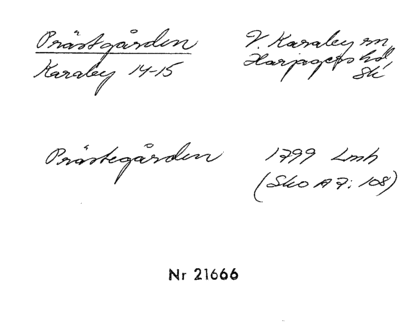 Prästgården V. Karaby sn
Harjagers hd
Karaby 14-15 Sk
Prästegården 1799 Lmh
(Sko A 7: 108)
Nr 21666